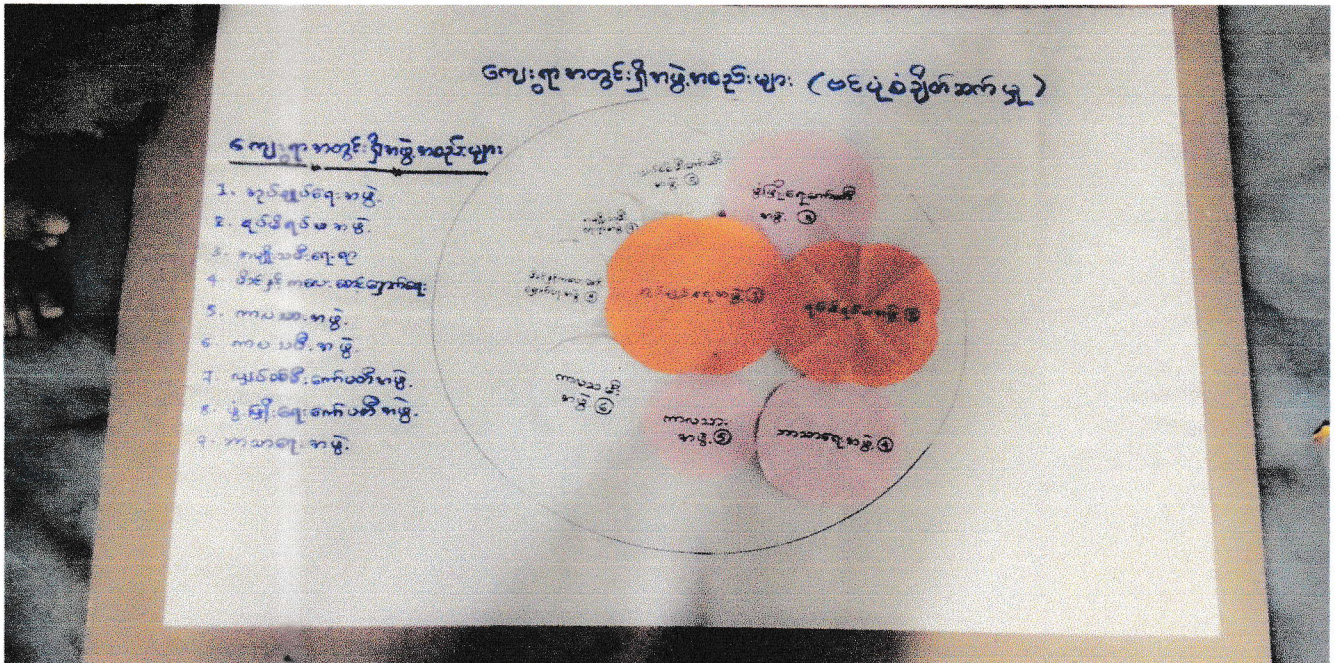 ကျေးရွာအတွင်းရှိအဖွဲ့အစည်းများ (ဗင်ပုံစံချိတ်ဆက်မှု)
ကျေးရွာအတွင်းရှိအဖွဲ့အစည်းများ
1. အုပ်ချုပ်ရေးအဖွဲ့
2. ရပ်မိရပ်ဖအဖွဲ့
3. အမျိုးသမီးရေးရာ
4 မိခင်နှင့်ကလေးစောင့်ရှောက်ရေး
5. ကာလသားအဖွဲ့
6 ကာလသမီးအဖွဲ့
7. လျှပ်စစ်မီးကော်မတီအဖွဲ့
8 ဖွံ့ဖြိုးရေးကော်မတီအဖွဲ့
9. ဘာသာရေးအဖွဲ့
ဖွံ့ဖြိုးရေးကော်မတီ
အဖွဲ့ ⑧
အုပ်ချုပ်ရေးအဖွဲ့ ①
ရပ်မိရပ်ဖအဖွဲ့ ②
ကာလသမီး
အဖွဲ့ ⑥
ကာလသား
အဖွဲ့ ⑤
ဘာသာရေးအဖွဲ့ ⑨